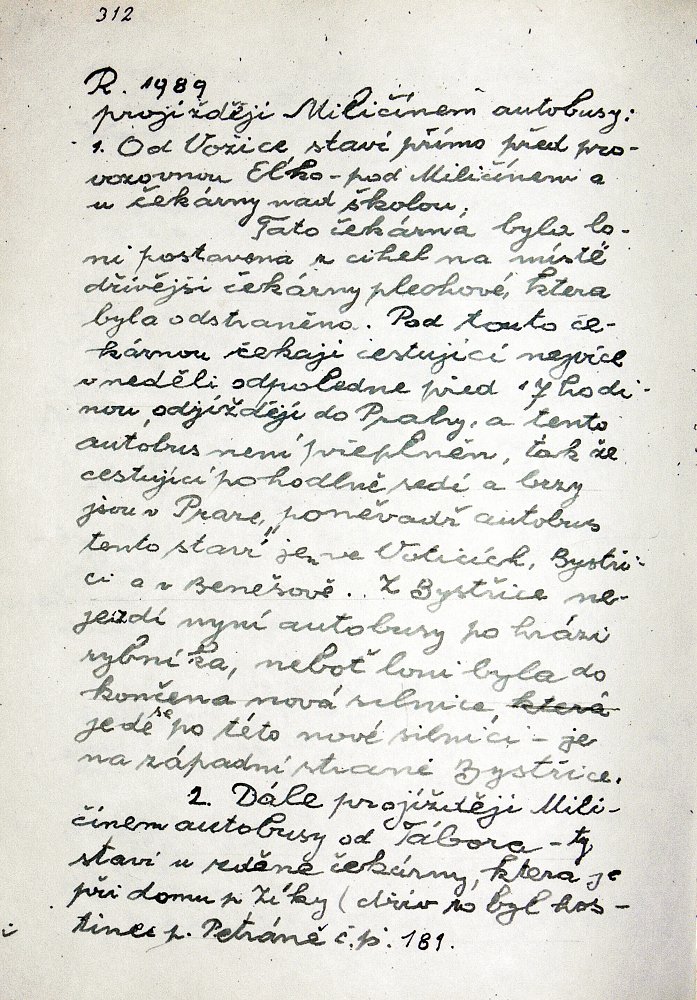 312
R. 1989
projíždějí Miličínem autobusy:
1. Od Vožice staví přímo před pro-
vozovnou Elko - pod Miličínem a
u čekárny nad školou.
Tato čekárna byla lo-
ni postavena z cihel na místě
dřívější čekárny plechové, ktera
byla odstraněna. Pod touto če-
kárnou čekají cestující nejvíce
v neděli odpoledne před 17 hodi-
nou, odjíždějí do Prahy, a tento
autobus není přeplněn, tak že
cestující pohodlně sedí a brzy
jsou v Praze, poněvadž autobus
tento staví jen ve Voticích, Bystři-
ci a v Benešově. Z Bystřice ne-
jezdí nyní autobusy po hrázi
rybníka, neboť loni byla do
končena nová silnice která
jede se po této nové silnici - je
na západní straně Bystřice.
2. Dále projíždějí Mili-
čínem autobusy od Tábora - ty
staví u zděné čekárny, ktera je
při domu p. Zíky (dřív to byl hos-
tinec p. Petráně č.p. 181.